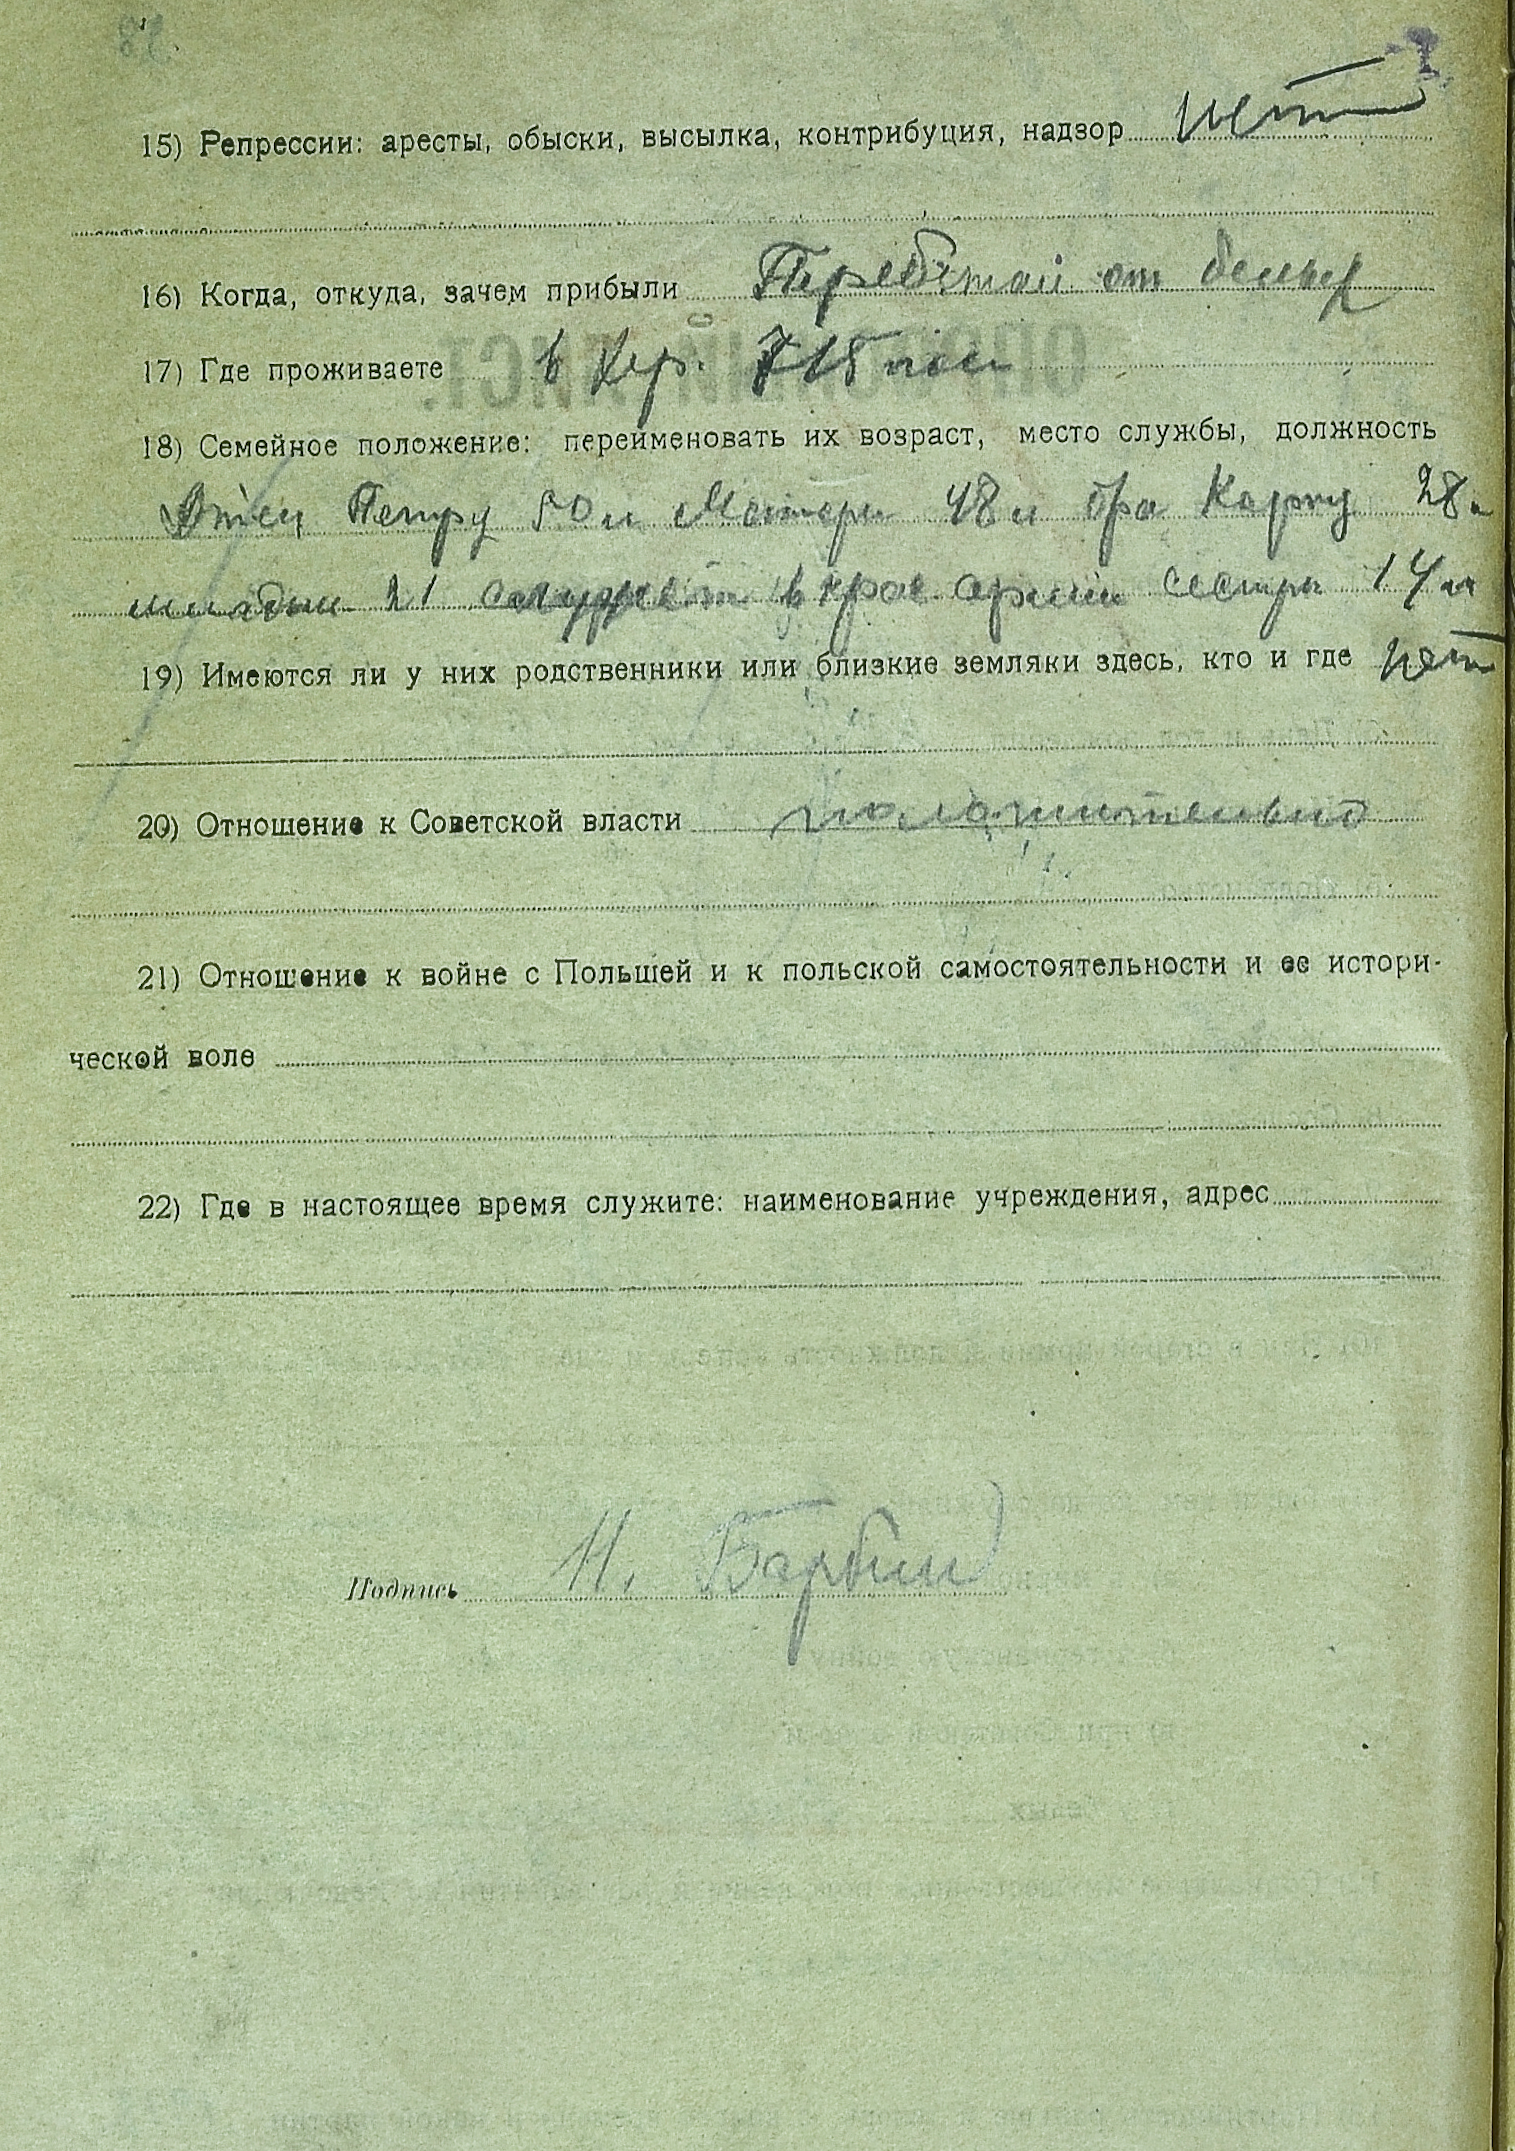 15) Репрессии: аресты, обыски, высылка, контрибуция, надзор нет
16) Когда, откуда, зачем прибыли от белых
17) Где проживаете в
18) Семейное положение: переименовать их возраст, место службы, должность
Отец Петру 50 л Матери 48 л бра 28
21 служит в крас армии сестры 14 л
19) Имеются ли у них родственники или близкие земляки здесь, кто и где нет
20) Отношение к Советской власти положительно
21) Отношение к войне с Польшей и к польской самостоятельности и ее истори-
ческой воле
22) Где в настоящее время служите: наименование учреждения, адрес
Подпись Н. Барбин